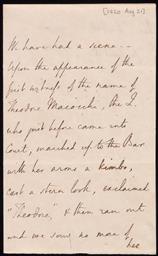 [1820 Aug 21]
We have had a scene —
Upon the appearance of the
first witness of the name of
Theodore Majocchi, the Q.
who just before came into
Court, marched up to the Bar
with her arms a kimbo,
cast a stern look, exclaimed
"Theodore," & then ran out
and we saw no more of
her